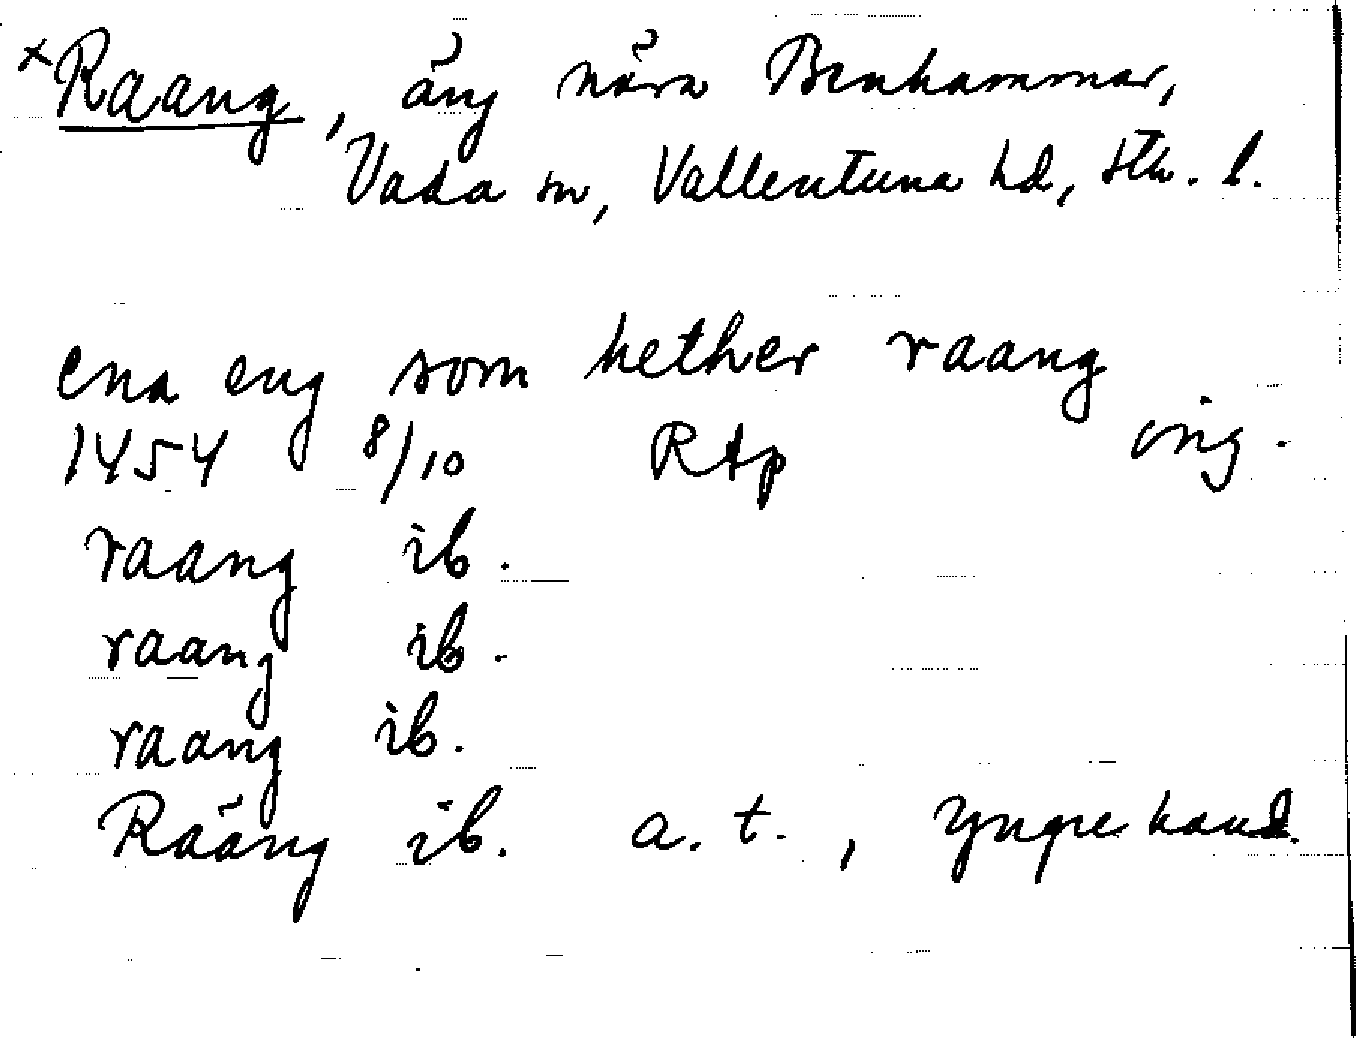 ×Raang, äng nära Benhammar,
Vada sn, Vallentuna hd, Sth. l.
ena eng som hether raang
1454 8/10 RAp orig.
raang ib.
raang ib.
raang ib.
Raäng ib. a. t., yngre hand.